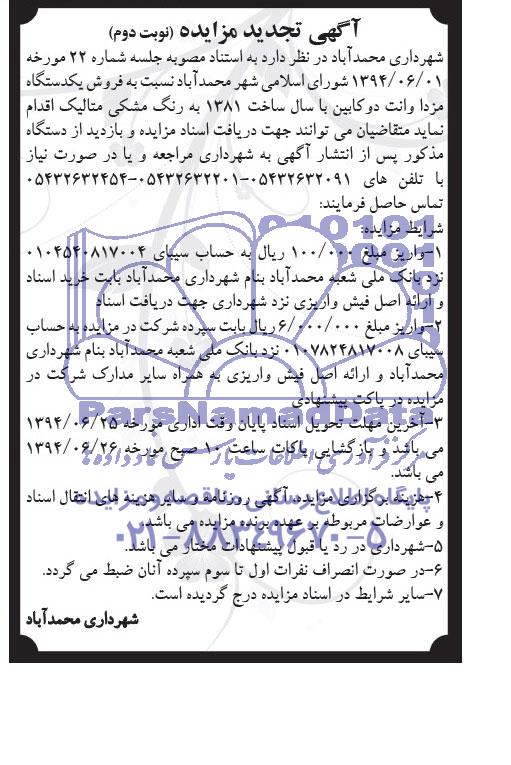 آگهی تجدید مزایده (نوبت دوم)
شهرداری محمدآباد در نظر دارد به استناد مصوبه جلسه شماره ۲۲ مورخه
۱۳۹۴/۰۶/۰۱ شورای اسلامی شهر محمدآباد نسبت به فروش یکدستگاه
مزدا وانت دوکابین با سال ساخت ۱۳۸۱ به رنگ مشکی متالیک اقدام
نماید متقاضیان می توانند جهت دریافت اسناد مزایده و بازدید از دستگاه
مذکور پس از انتشار آگهی به شهرداری مراجعه و یا در صورت نیاز
با تلفن های ۰۵۴۳۲۶۳۲۰۹۱-۰۵۴۳۲۶۳۲۲۰۱-۰۵۴۳۲۶۳۲۴۵۴
تماس حاصل فرمایند:
شرایط مزایده:
۱-واریز مبلغ ۱۰۰/۰۰۰ ریال به حساب سیبای ۰۱۰۴۵۴۰۸۱۷۰۰۴
نزد بانک ملی شعبه محمدآباد بنام شهرداری محمدآباد بابت خرید اسناد
و ارائه اصل فیش واریزی نزد شهرداری جهت دریافت اسناد
۲-واریز مبلغ ۶/۰۰۰/۰۰۰ ریال بابت سپرده شرکت در مزایده به حساب
سیبای ۰۱۰۷۸۲۴۸۱۷۰۰۸ نزد بانک ملی شعبه محمدآباد بنام شهرداری
محمدآباد و ارائه اصل فیش واریزی به همراه سایر مدارک شرکت در
مزایده در پاکت پیشنهادی
ParsNamadData
۳-آخرین مهلت تحویل اسناد پایان وقت اداری مورخه ۱۳۹۴/۰۶/۲۵
می باشد و بازگشایی پاکات ساعت ۱۰ صبح مورخه ۱۳۹۴/۰۶/۲۶
می باشد.
۴-هزینه برگزاری مزایده، آگهی روزنامه و سایر هزینه های انتقال اسناد
و عوارضات مربوطه بر عهده برنده مزایده می باشد.
۰۲۱-۸۸۳۴۹۶۷۰-۵
۵-شهرداری در رد یا قبول پیشنهادات مختار می باشد.
۶-در صورت انصراف نفرات اول تا سوم سپرده آنان ضبط می گردد.
۷-سایر شرایط در اسناد مزایده درج گردیده است.
شهرداری محمدآباد